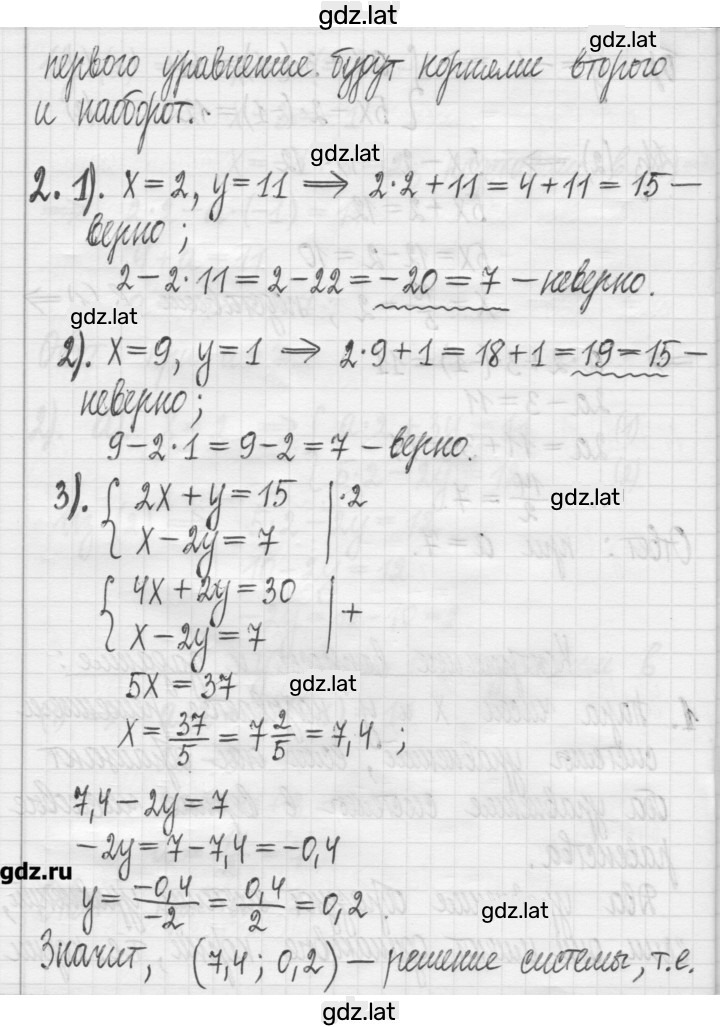 gdz.lat
gdz.lat
первого уравнение будут корнями второго
и наоборот.
gdz.lat
2. 1). x=2, y=11 ⟹ 2·2+11=4+11=15 —
верно;
2-2·11=2-22=-20=7 — неверно.
gdz.lat
2). x=9, y=1 ⟹ 2·9+1=18+1=19=15 —
неверно;
9-2·1=9-2=7 — верно.
3). { 2x+y=15 |·2
x-2y=7
gdz.lat
{ 4x+2y=30 | +
x-2y=7
5x=37
gdz.lat
x=37/5=7 2/5=7,4. ;
7,4-2y=7
-2y=7-7,4=-0,4
gdz.ru
y=-0,4/-2=0,4/2=0,2.
gdz.lat
Значит, (7,4; 0,2) — решение системы, т.е.
gdz.lat